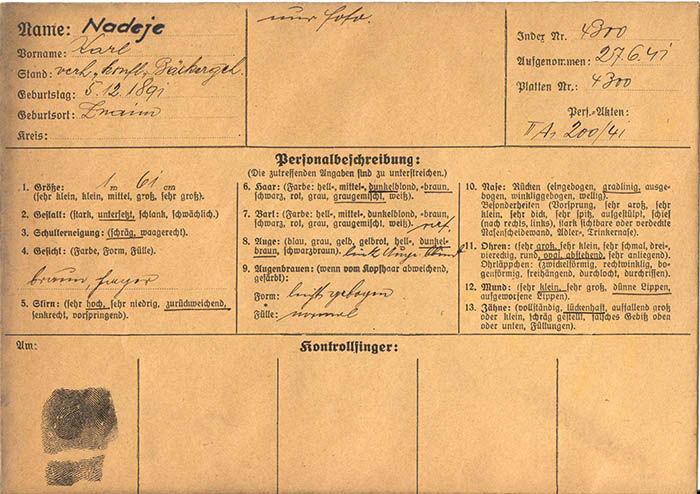 Name: Nadeje
Vorname: Karl
Stand: verh., konfl., Bäckergeh.
Geburtstag: 5.12.1891
Geburtsort: Znaim
Kreis:
nur Foto.
Index Nr. 4300
Aufgenommen: 27.6.41
Platten Nr.: 4300
Pers.-Akten:
II A1 200/41
Personalbeschreibung:
(Die zutreffenden Angaben sind zu unterstreichen.)
1. Größe: 1 m 61 cm
(sehr klein, klein, mittel, groß, sehr groß).
2. Gestalt: (stark, untersetzt, schlank, schwächlich).
3. Schulterneigung: (schräg, waagerecht).
4. Gesicht: (Farbe, Form, Fülle).
braun, hager
5. Stirn: (sehr hoch, sehr niedrig, zurückweichend,
senkrecht, vorspringend).
6. Haar: (Farbe: hell-, mittel-, dunkelblond, -braun,
schwarz, rot, grau, graugemischt, weiß).
7. Bart: (Farbe: hell-, mittel-, dunkelblond, -braun,
schwarz, rot, grau, graugemischt, weiß).
8. Auge: (blau, grau, gelb, gelbrot, hell-, dunkel-
braun, schwarzbraun). link Auge blind
9. Augenbrauen: (wenn vom Kopfhaar abweichend,
gefärbt):
Form: leicht gebogen
Fülle: normal
10. Nase: Rücken (eingebogen, gradlinig, ausge-
bogen, winkliggebogen, wellig).
Besonderheiten (Vorsprung, sehr groß, sehr
klein, sehr dick, sehr spitz, aufgestülpt, schief
(nach rechts, links), stark sichtbare oder verdeckte
Nasenscheidewand, Adler-, Trinkernase).
11. Ohren: (sehr groß, sehr klein, sehr schmal, drei-,
viereckig, rund, oval, abstehend, sehr anliegend).
Ohrläppchen: (zwickelförmig, rechtwinklig, bo-
genförmig, freihängend, durchlocht, durchrissen).
12. Mund: (sehr klein, sehr groß, dünne Lippen,
aufgeworfene Lippen).
13. Zähne: (vollständig, lückenhaft, auffallend groß
oder klein, schräg gestellt, falsches Gebiß oben
oder unten, Füllungen).
Am:
Kontrollfinger: